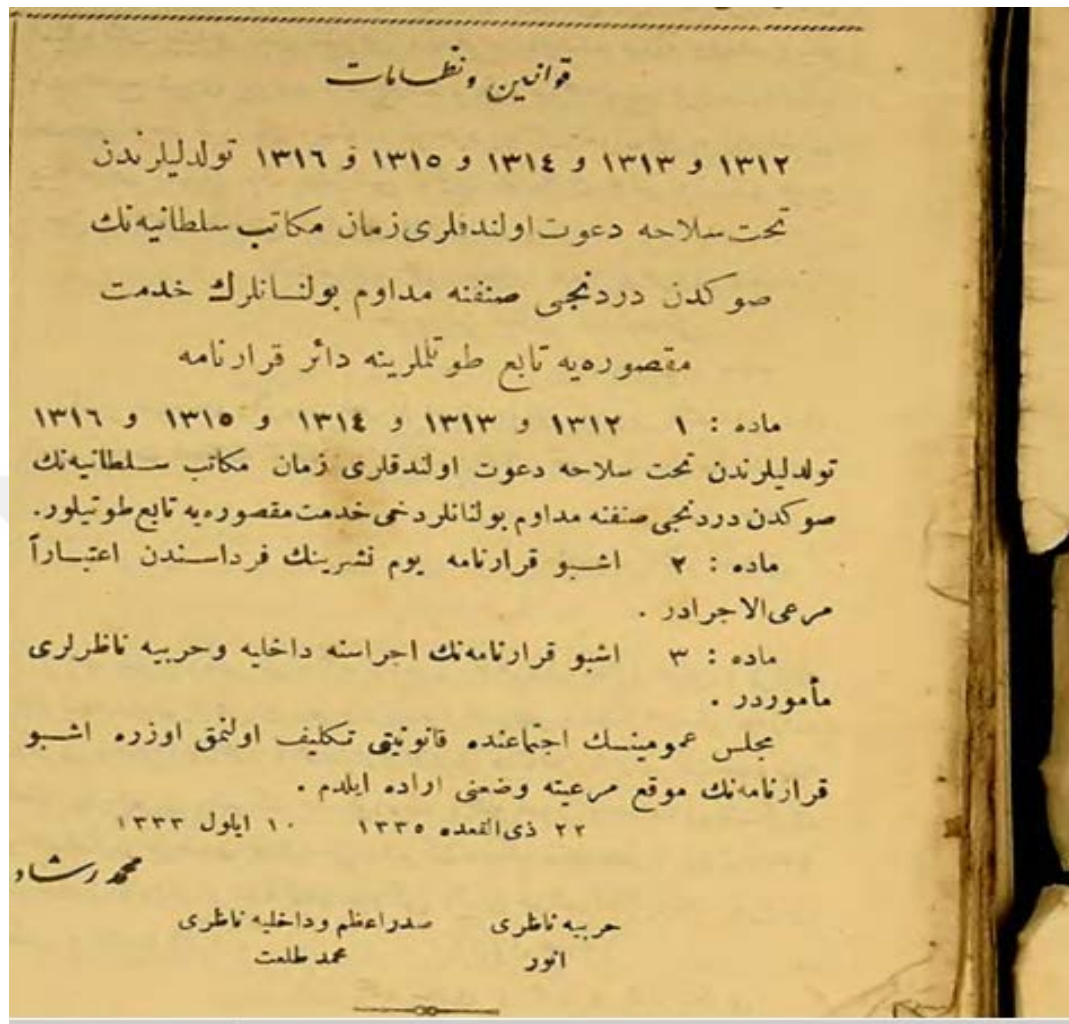 قوانین ونظامات
١٣١٢ و ١٣١٣ و ١٣١٤ و ١٣١٥ و ١٣١٦ تولدلیلرندن
تحت سلاحه دعوت اولندقلری زمان مکاتب سلطانیه‌نك
صوکدن دردنجی صنفنه مداوم بولنانلرك خدمت
مقصوره‌یه تابع طوتلملرینه دائر قرارنامه
ماده : ١ ١٣١٢ و ١٣١٣ و ١٣١٤ و ١٣١٥ و ١٣١٦
تولدلیلرندن تحت سلاحه دعوت اولندقلری زمان مکاتب سلطانیه‌نك
صوکدن دردنجی صنفنه مداوم بولنانلر دخی خدمت مقصوره‌یه تابع طوتیلور.
ماده : ٢ اشبو قرارنامه یوم نشرینك فرداسندن اعتباراً
مرعی‌الاجرادر .
ماده : ٣ اشبو قرارنامه‌نك اجراسنه داخلیه وحربیه ناظرلری
مأموردر .
مجلس عمومینك اجتماعنده قانونیتی تکلیف اولنمق اوزره اشبو
قرارنامه‌نك موقع مرعیته وضعنی اراده ایلدم .
٢٢ ذی‌القعده ١٣٣٥ ١٠ ایلول ١٣٣٣
محمد رشاد
حربیه ناظری صدراعظم وداخلیه ناظری
انور محمد طلعت